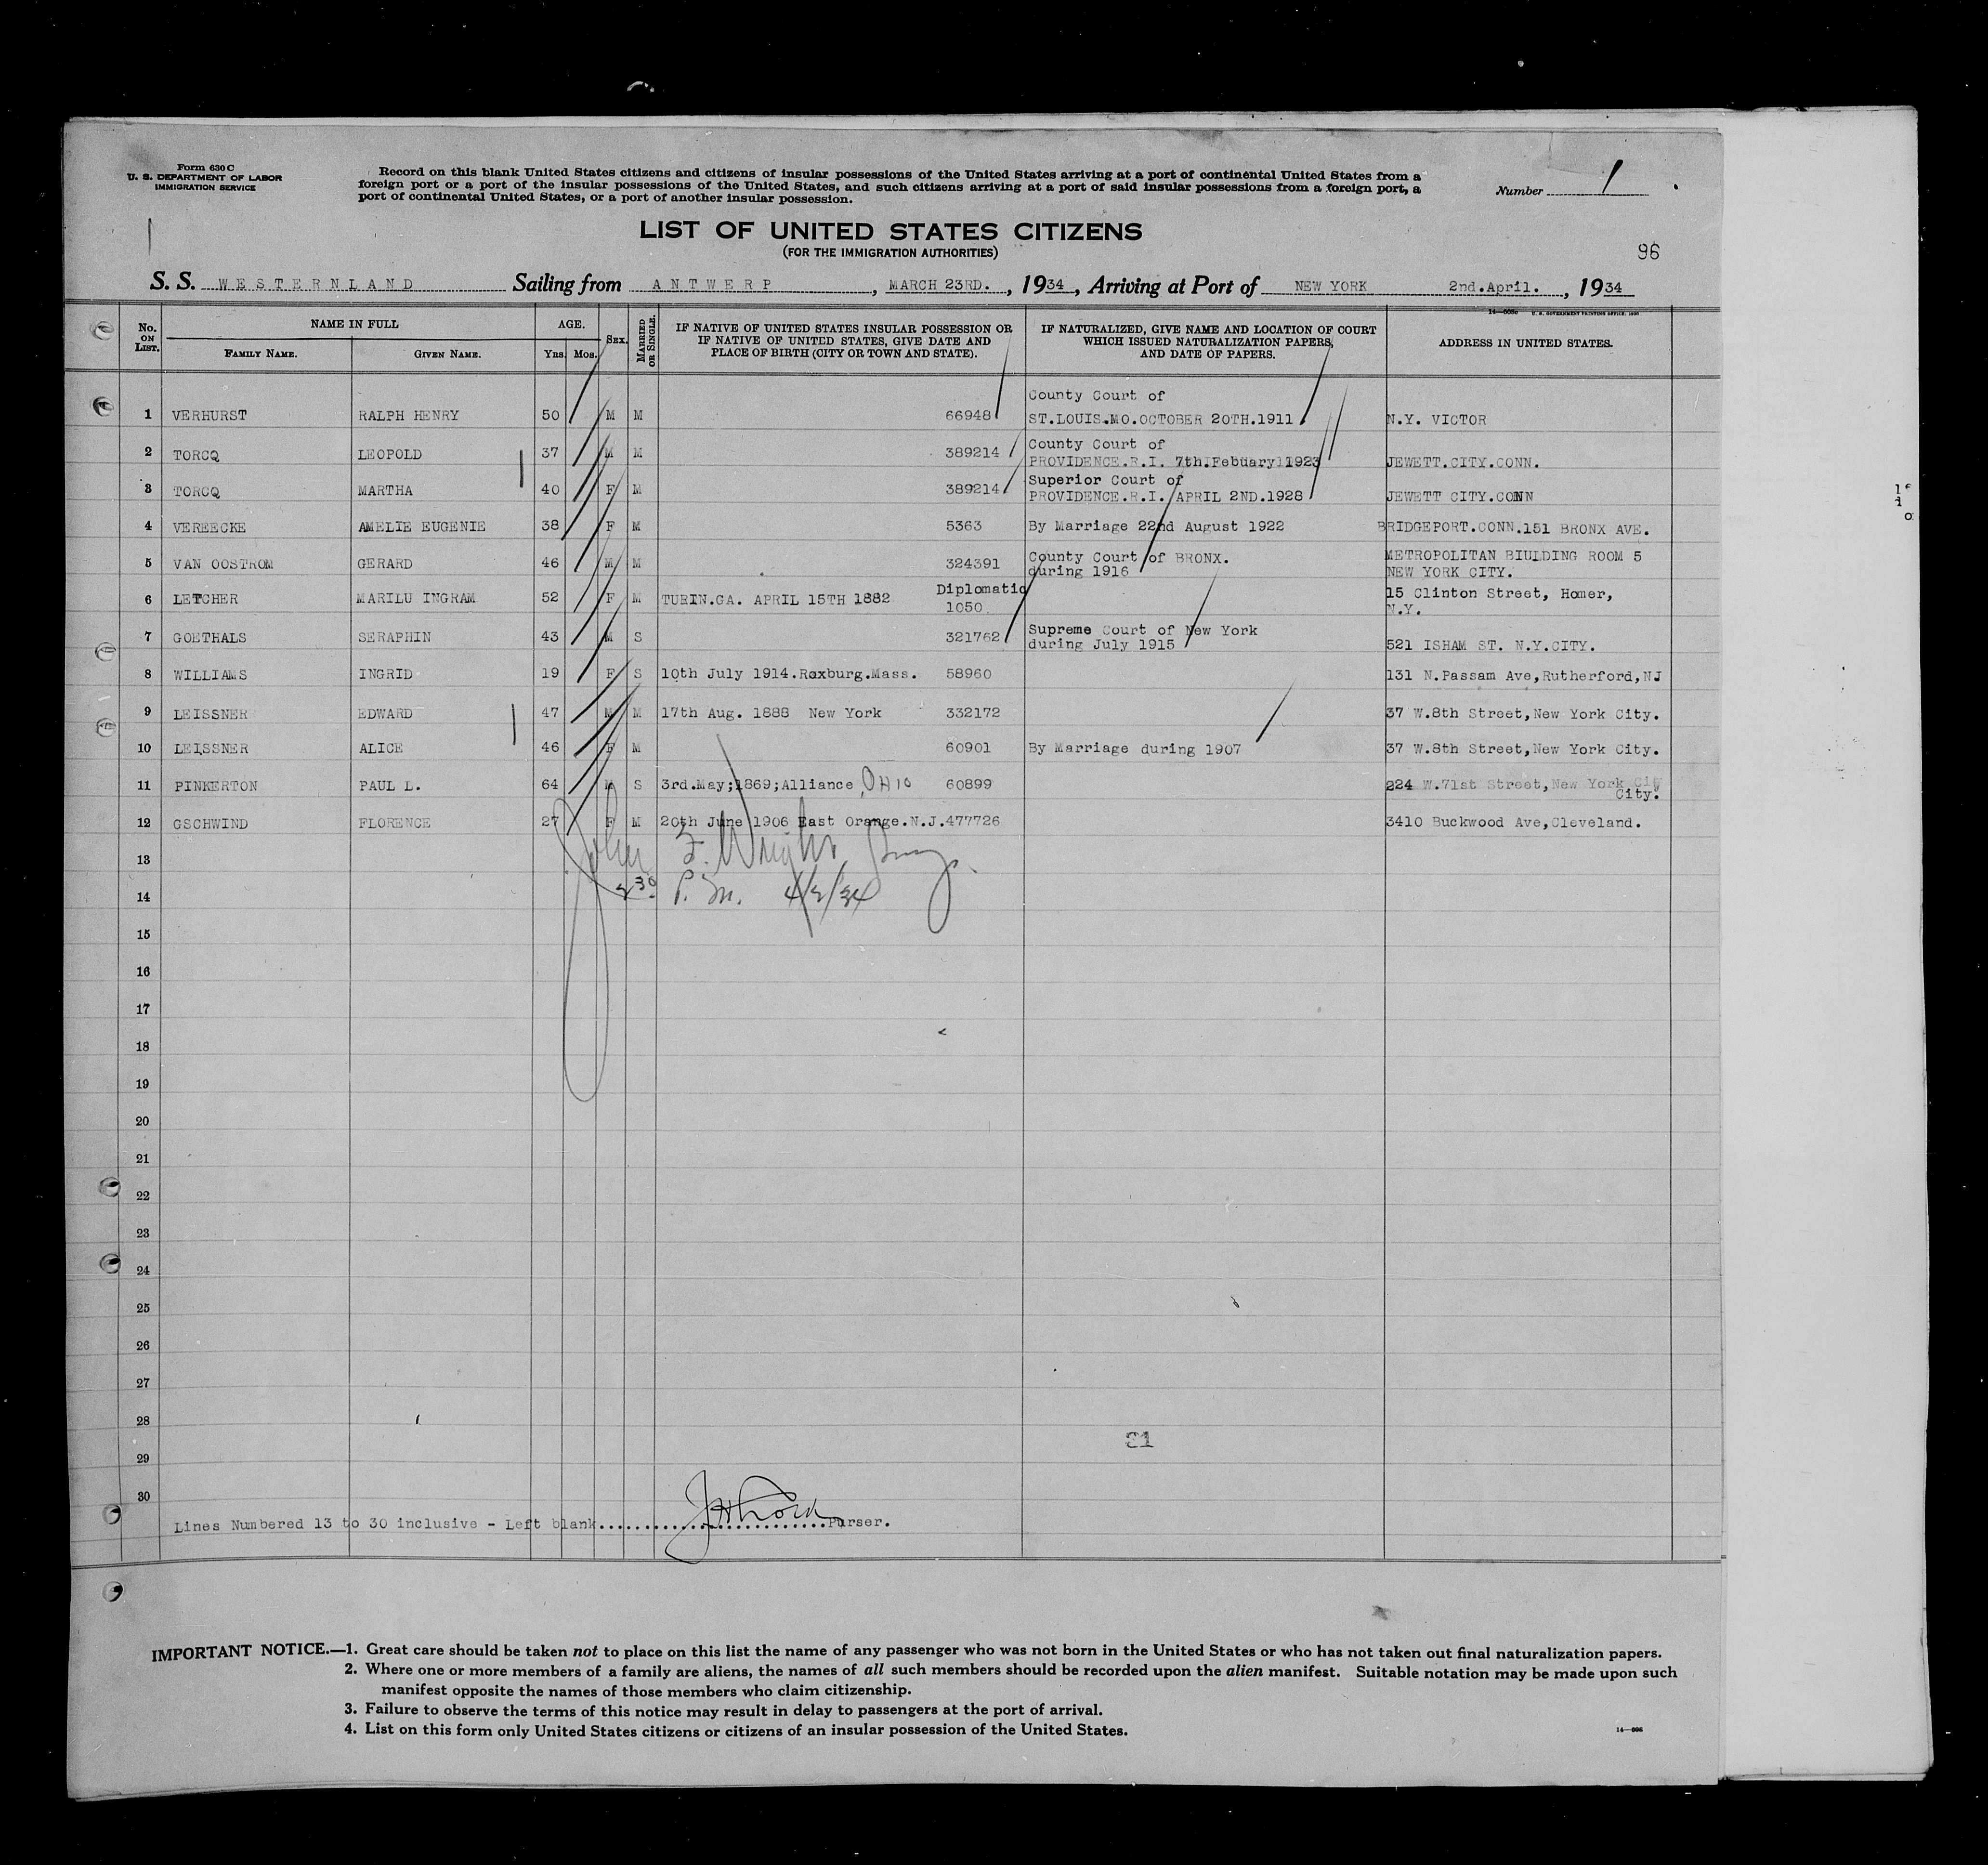 Form 630 C
U. S. DEPARTMENT OF LABOR
IMMIGRATION SERVICE
Record on this blank United States citizens and citizens of insular possessions of the United States arriving at a port of continental United States from a
foreign port or a port of the insular possessions of the United States, and such citizens arriving at a port of said insular possessions from a foreign port, a
port of continental United States, or a port of another insular possession.
Number 1
LIST OF UNITED STATES CITIZENS
(FOR THE IMMIGRATION AUTHORITIES)
96
S. S. WESTERNLAND Sailing from ANTWERP, MARCH 23RD., 1934, Arriving at Port of NEW YORK 2nd.April., 1934
No. ON LIST. NAME IN FULL FAMILY NAME. GIVEN NAME. AGE. Yrs. Mos. SEX. MARRIED OR SINGLE. IF NATIVE OF UNITED STATES INSULAR POSSESSION OR IF NATIVE OF UNITED STATES, GIVE DATE AND PLACE OF BIRTH (CITY OR TOWN AND STATE). IF NATURALIZED, GIVE NAME AND LOCATION OF COURT WHICH ISSUED NATURALIZATION PAPERS, AND DATE OF PAPERS. ADDRESS IN UNITED STATES.
County Court of
1 VERHURST RALPH HENRY 50 M M 66948 ST.LOUIS.MO.OCTOBER 20TH.1911 N.Y. VICTOR
County Court of
2 TORCQ LEOPOLD 37 M M 389214 PROVIDENCE.R.I. 7th.Febuary 1923 JEWETT.CITY.CONN.
Superior Court of
3 TORCQ MARTHA 40 F M 389214 PROVIDENCE.R.I. APRIL 2ND.1928 JEWETT CITY.CONN
4 VEREECKE AMELIE EUGENIE 38 F M 5363 By Marriage 22nd August 1922 BRIDGEPORT.CONN.151 BRONX AVE.
5 VAN OOSTROM GERARD 46 M M 324391 County Court of BRONX. METROPOLITAN BIULDING ROOM 5
during 1916 NEW YORK CITY.
6 LETCHER MARILU INGRAM 52 F M TURIN.GA. APRIL 15TH 1882 Diplomatic 15 Clinton Street, Homer,
1050 N.Y.
Supreme Court of New York
7 GOETHALS SERAPHIN 43 M S 321762 during July 1915 521 ISHAM ST. N.Y.CITY.
8 WILLIAMS INGRID 19 F S 10th July 1914.Roxburg.Mass. 58960 131 N.Passam Ave,Rutherford,NJ
9 LEISSNER EDWARD 47 M M 17th Aug. 1888 New York 332172 37 W.8th Street,New York City.
10 LEISSNER ALICE 46 F M 60901 By Marriage during 1907 37 W.8th Street,New York City.
11 PINKERTON PAUL L. 64 M S 3rd.May;1869;Alliance OHIO 60899 224 W.71st Street,New York Cit
City.
12 GSCHWIND FLORENCE 27 F M 20th June 1906 East Orange.N.J.477726 3410 Buckwood Ave,Cleveland.
13 John F. Wright
14 2 30 P. M. 4/2/34
15
16
17
18
19
20
21
22
23
24
25
26
27
28
31
29
30
Lines Numbered 13 to 30 inclusive - Left blank..........................Purser.
IMPORTANT NOTICE.—1. Great care should be taken not to place on this list the name of any passenger who was not born in the United States or who has not taken out final naturalization papers.
2. Where one or more members of a family are aliens, the names of all such members should be recorded upon the alien manifest. Suitable notation may be made upon such
manifest opposite the names of those members who claim citizenship.
3. Failure to observe the terms of this notice may result in delay to passengers at the port of arrival.
4. List on this form only United States citizens or citizens of an insular possession of the United States.